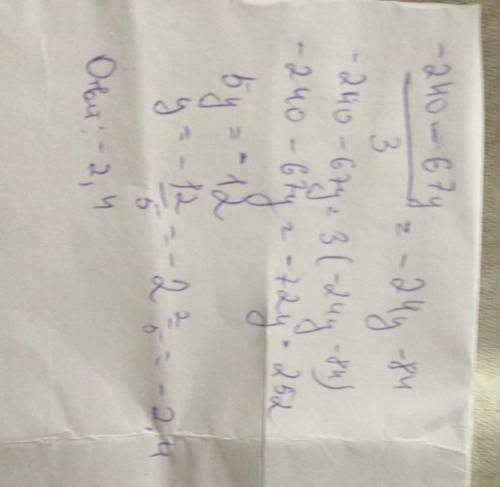 -240 - 67y / 3 = -24y - 84
-240 - 67y = 3(-24y - 84)
-240 - 67y = -72y - 252
5y = -12
y = -12/5 = -2 2/5 = -2,4
Ответ: -2,4